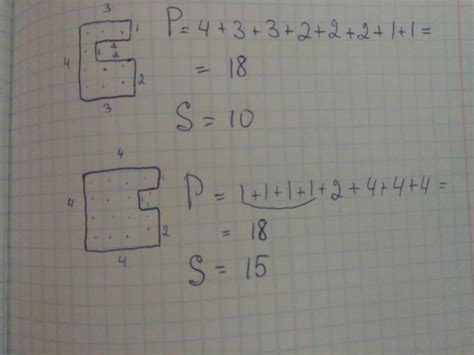 3
4
1
1
2
2
2
3
P = 4 + 3 + 3 + 2 + 2 + 2 + 1 + 1 =
= 18
S = 10
4
4
2
4
P = 1 + 1 + 1 + 1 + 2 + 4 + 4 + 4 =
= 18
S = 15